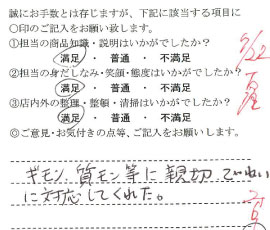 誠にお手数とは存じますが、下記に該当する項目に
○印のご記入をお願い致します。
①担当の商品知識・説明はいかがでしたか?
満足 ・ 普通 ・ 不満足
②担当の身だしなみ・笑顔・態度はいかがでしたか?
満足 ・ 普通 ・ 不満足
③店内外の整理・整頓・清掃はいかがでしたか?
満足 ・ 普通 ・ 不満足
◎ご意見・お気付きの点等、ご記入をお願いします。
ギモン、質モン等に親切、ていねい
に対応してくれた。